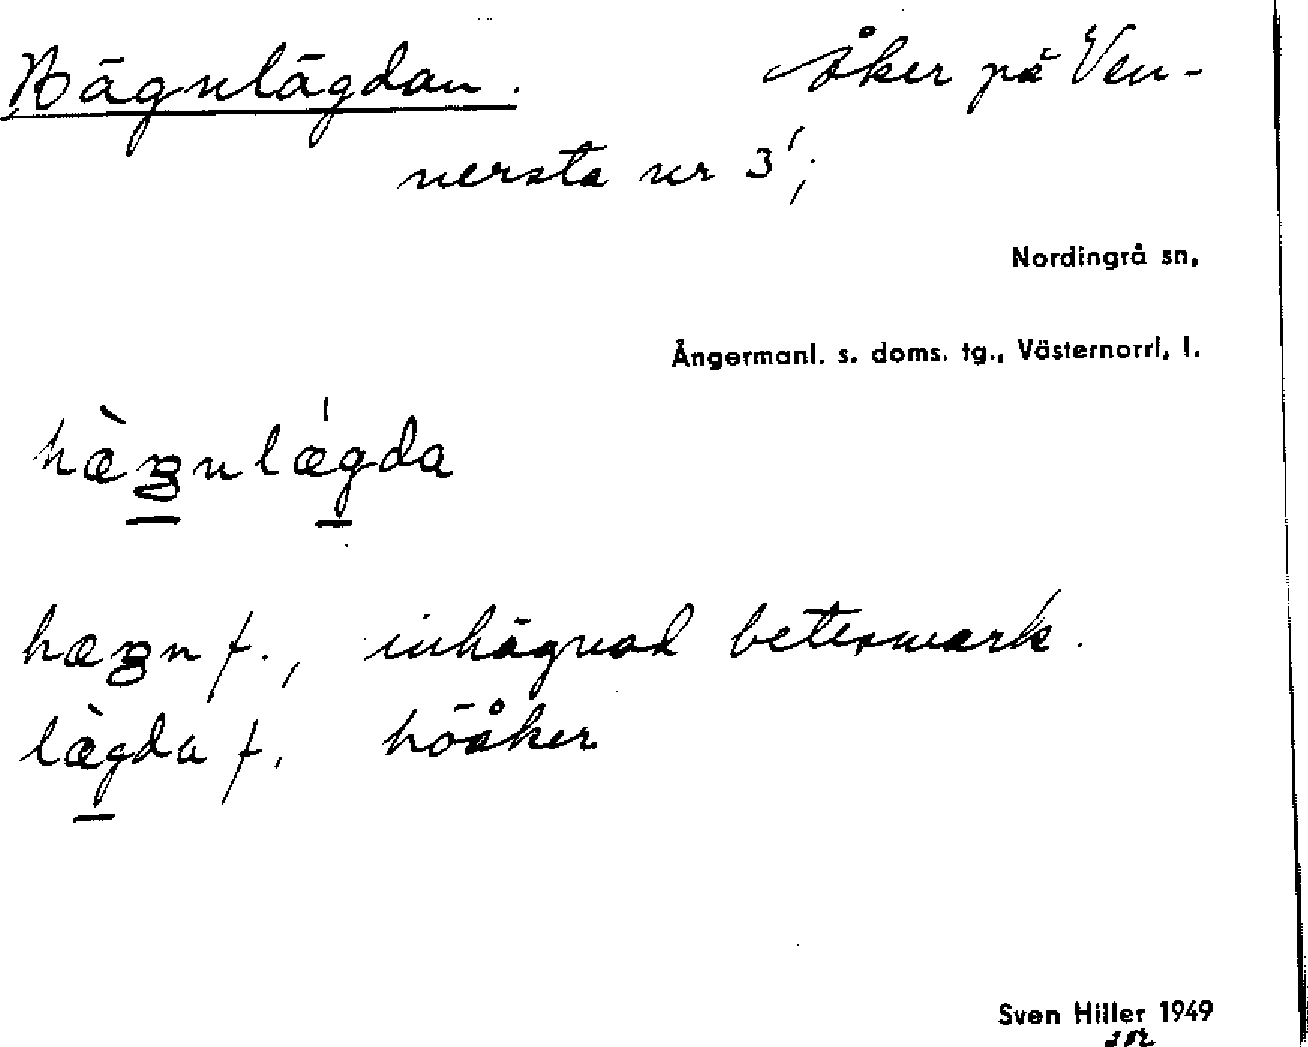 Hägnlägdan.  åker på Ven-
nersta nr 3¹;
Nordingrå sn,
Ångermanl. s. doms. tg., Västernorrl. l.
hæ̀gnlægda
hægn f., inhägnad betesmark.
læ̀gda f. höåker
Sven Hiller 1949